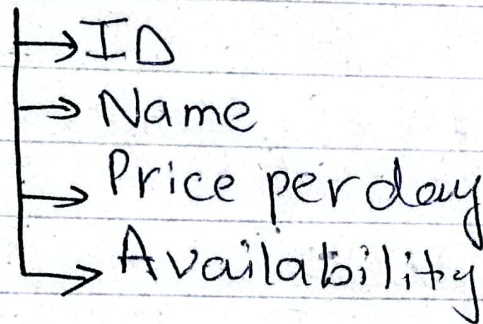 ID
Name
Price per day
Availability